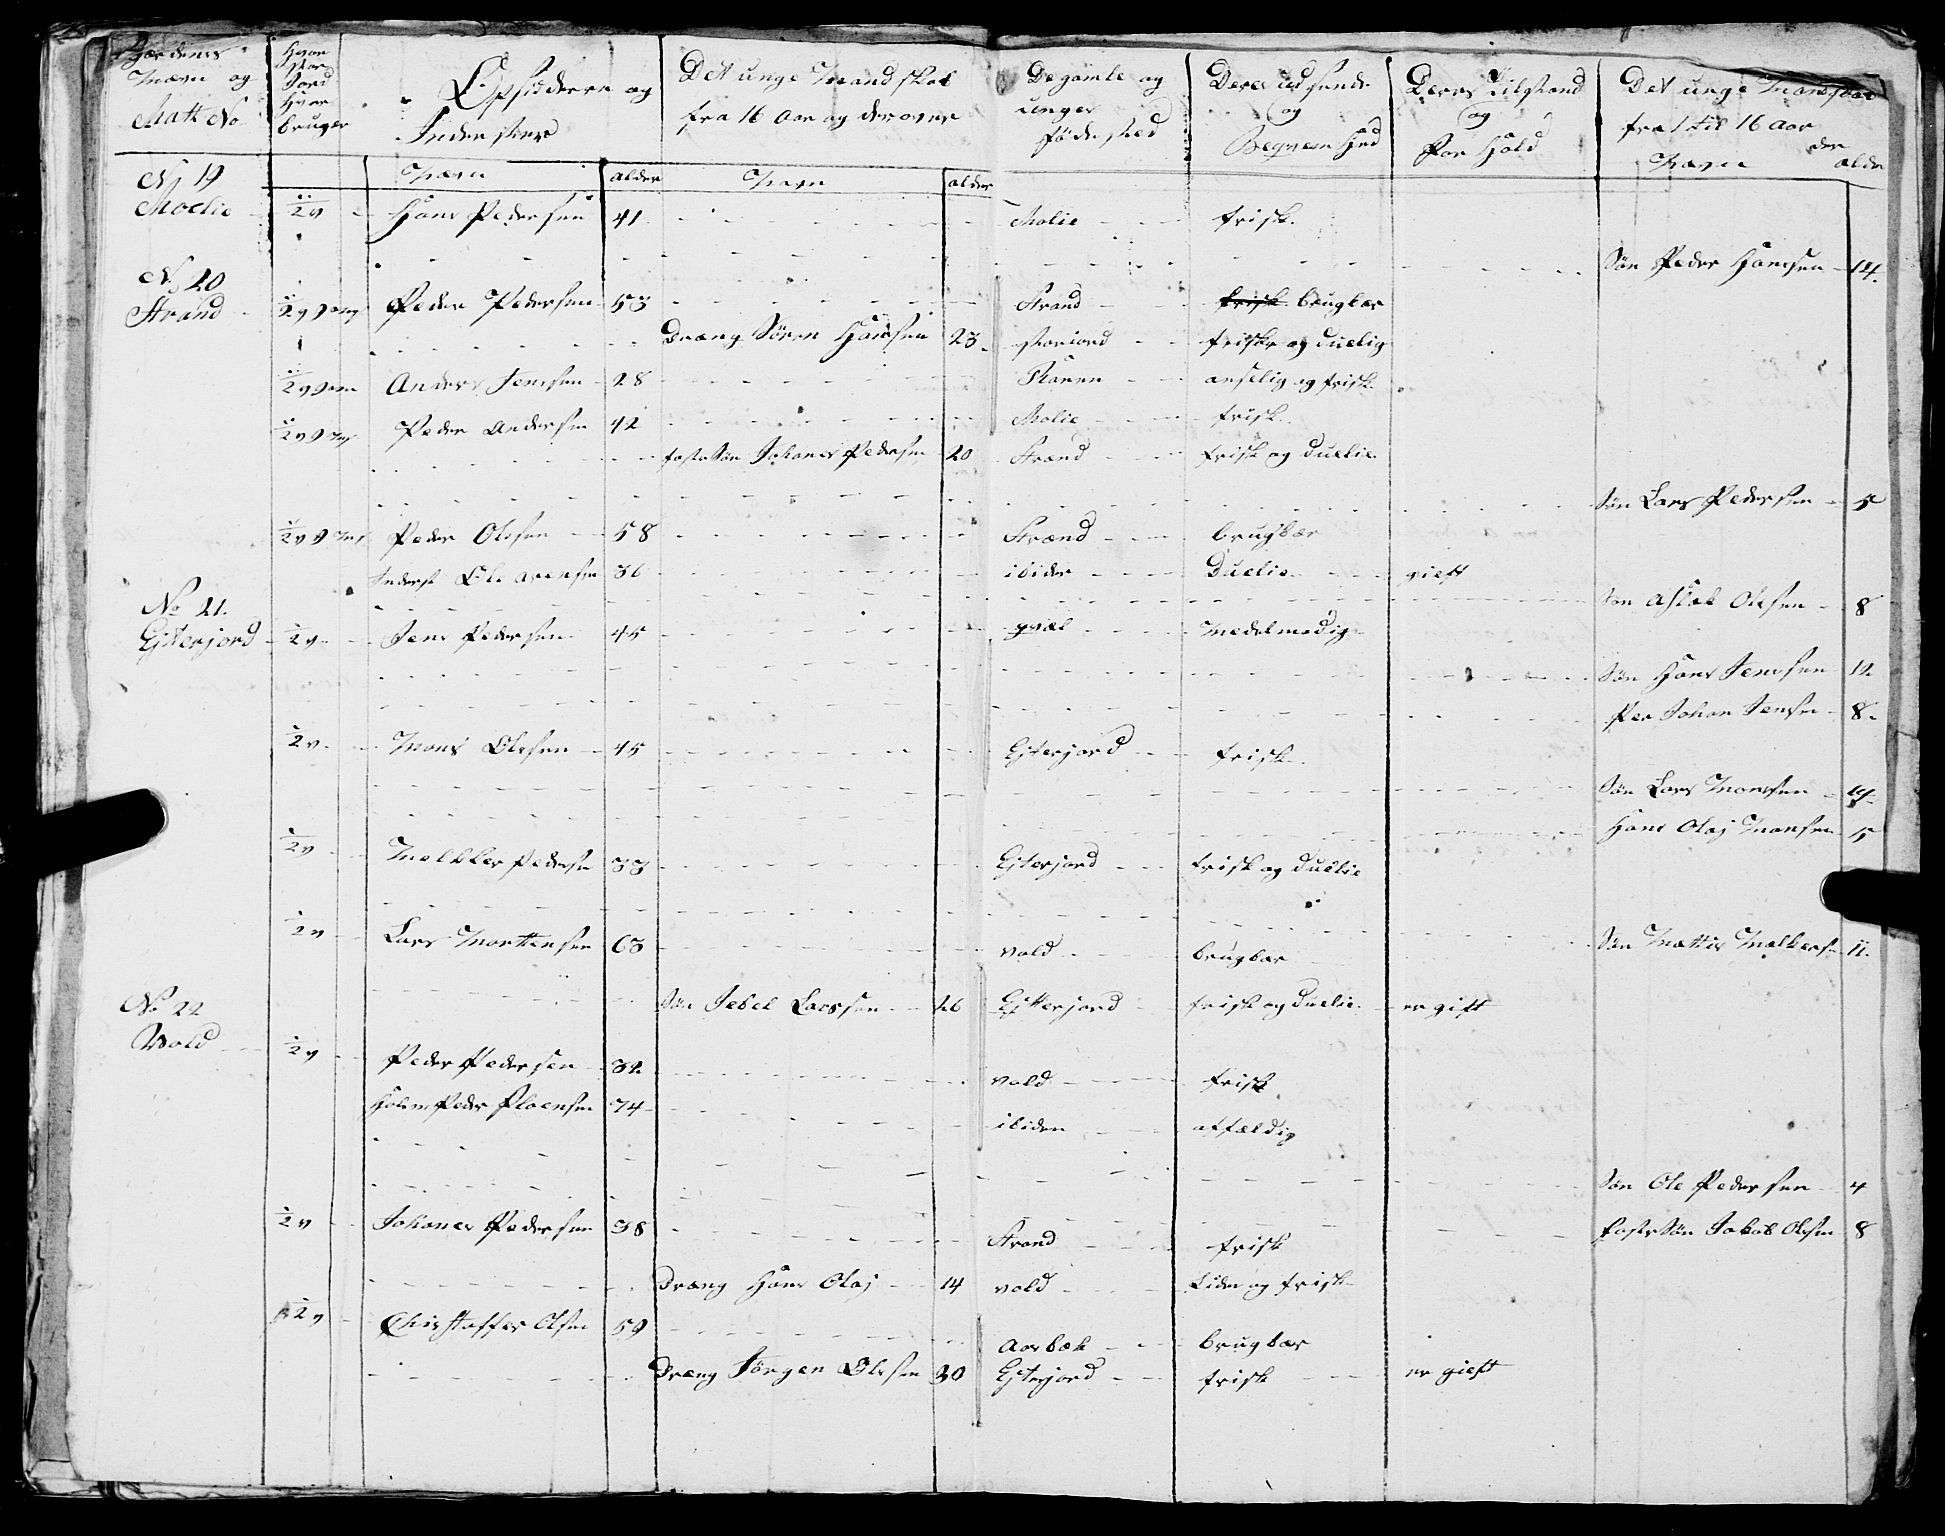 Gaardenes Navn og Matt No
Hvor stor Jord Hver bruger
Opsiddere og Inderster
Det unge Mandskab fra 16 Aar og derover
De gamle og unges fødested
Deres Udseende og Beqvemhed
Deres Tilstand og Forhold
Det unge Mandskab fra 1 til 16 Aar
Navn alder Navn alder Navn deres alder
No 19
Moelie 2 v Hans Pedersen 41 Molie frisk
Søn Peder Hansen 14.
No 20
Strand 2 v Peder Pedersen 53 Strand frisk brugbar
Dræng Søren Hansen 23 Storjord frisk og duelig
2 v Anders Jensen 28 anselig og frisk
2 v Peder Andersen 42 Molie frisk
foster Søn Johanes Pedersen 20 Strand frisk og duelie
Søn Lars Pedersen 5
2 v Peder Olsen 58 Strand brugbar
Inderst Ole 36 ibiden Duelie gieft
Søn Aslak Olsen 8
No 21.
Ejterjord 2 v Jens Pedersen 45 qvæl Medelmadig
Søn Hans Jensen 12
Per Johan Jensen 8
2 v Mons Olesen 45 Ejterjord frisk
Søn Lars Monsen
Hans Olaj Monsen 5
2 v Melkker Pedersen 33 Ejterjord frisk og duelie
Søn Mattis Melkersen 11.
2 v Lars Mortensen 63 vold brugbar
Søn Jebel Larssen 26 Ejterjord frisk og duelie er gift
No 22
Wold 2 v Peder Pedersen 32 vold frisk
Peder 74 ibiden affældig
Søn Ole Pedersen 4
2 v Johanes Pedersen 38 Strand frisk
foster Søn Jakob Olsen 8
Dræng Hans Olaj 14 vold Liden og frisk
2 v Christoffer Olsen 59 Aasbak brugbar
Dræng Jørgen Olesen 30 Ejterjord frisk er gieft